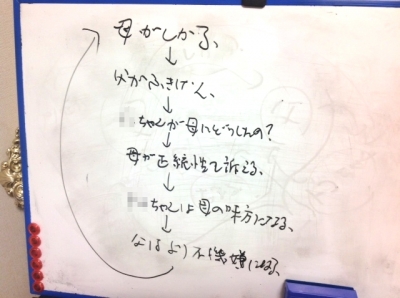 母がしかる、
父がふきげん、
ちゃんが母にどうしたの?
母が正統性を訴える、
ちゃんは母の味方になる、
父はより不機嫌になる、